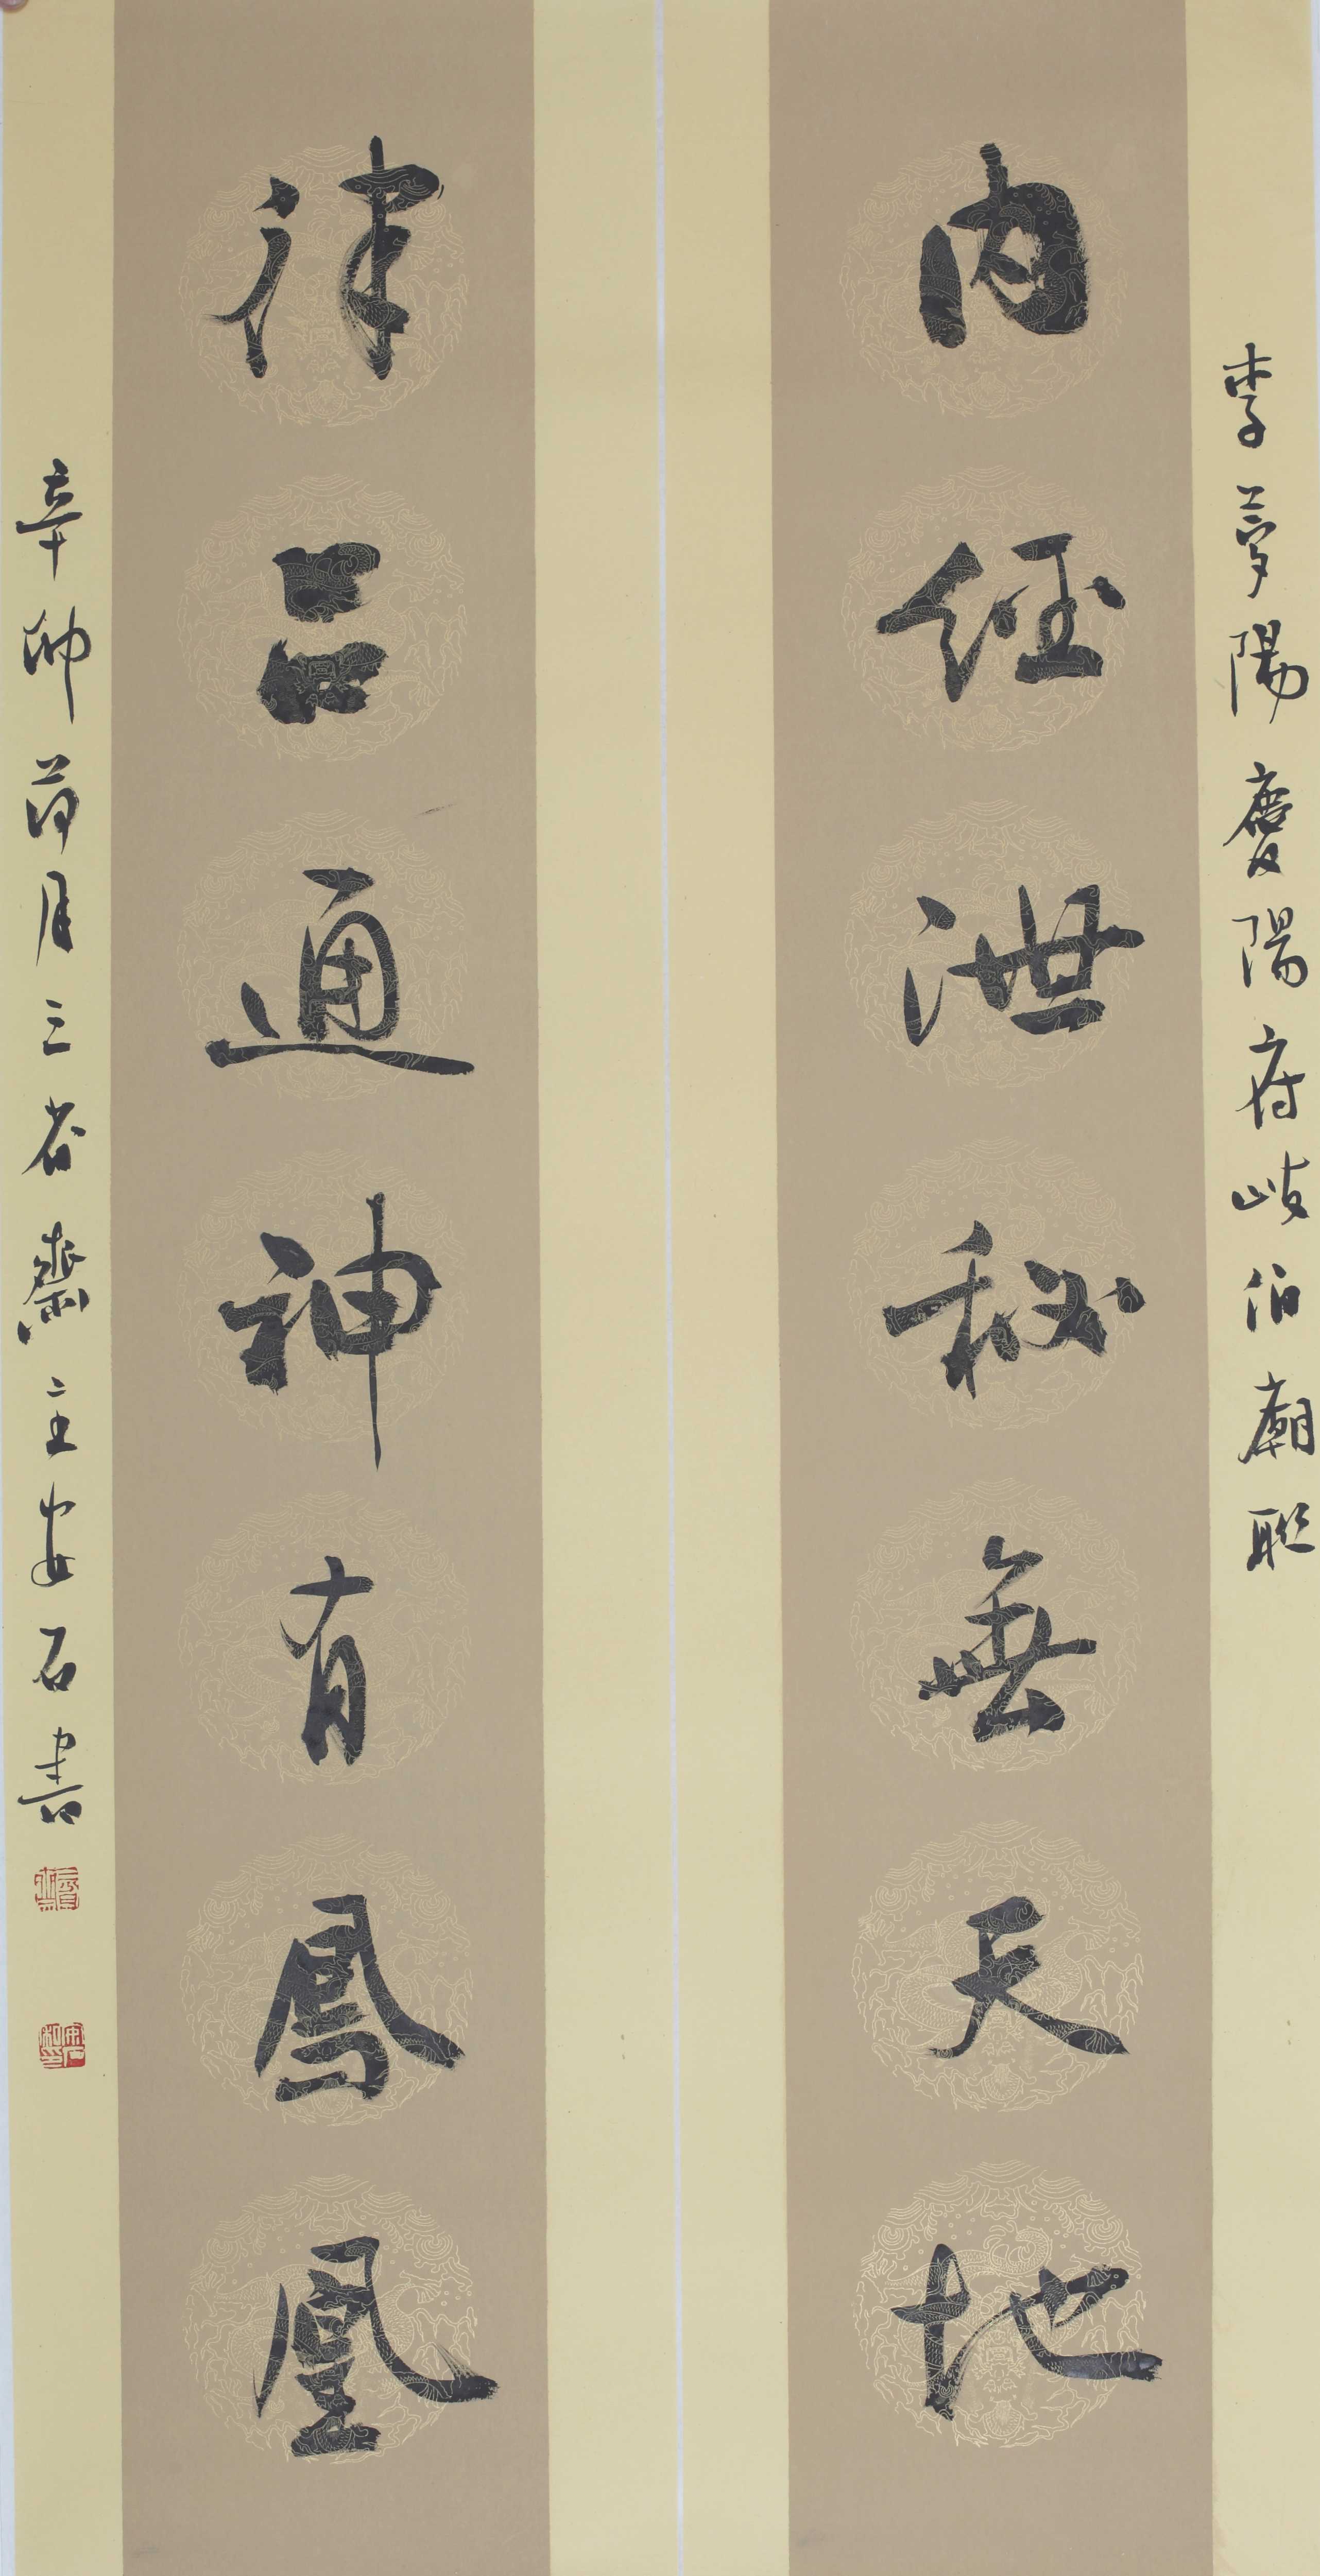 李夢陽慶陽府岐伯廟聯
内經泄秘無天地
律呂通神有鳳凰
辛卯荷月三省齋主安石書